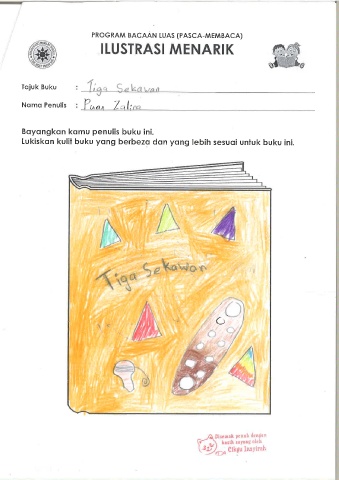 PROGRAM BACAAN LUAS (PASCA-MEMBACA)
ILUSTRASI MENARIK
Tajuk Buku : Tiga Sekawan
Nama Penulis : Puan Zalina
Bayangkan kamu penulis buku ini.
Lukiskan kulit buku yang berbeza dan yang lebih sesuai untuk buku ini.
Tiga Sekawan
Disemak penuh dengan
kasih sayang oleh
Cikgu Insyirah